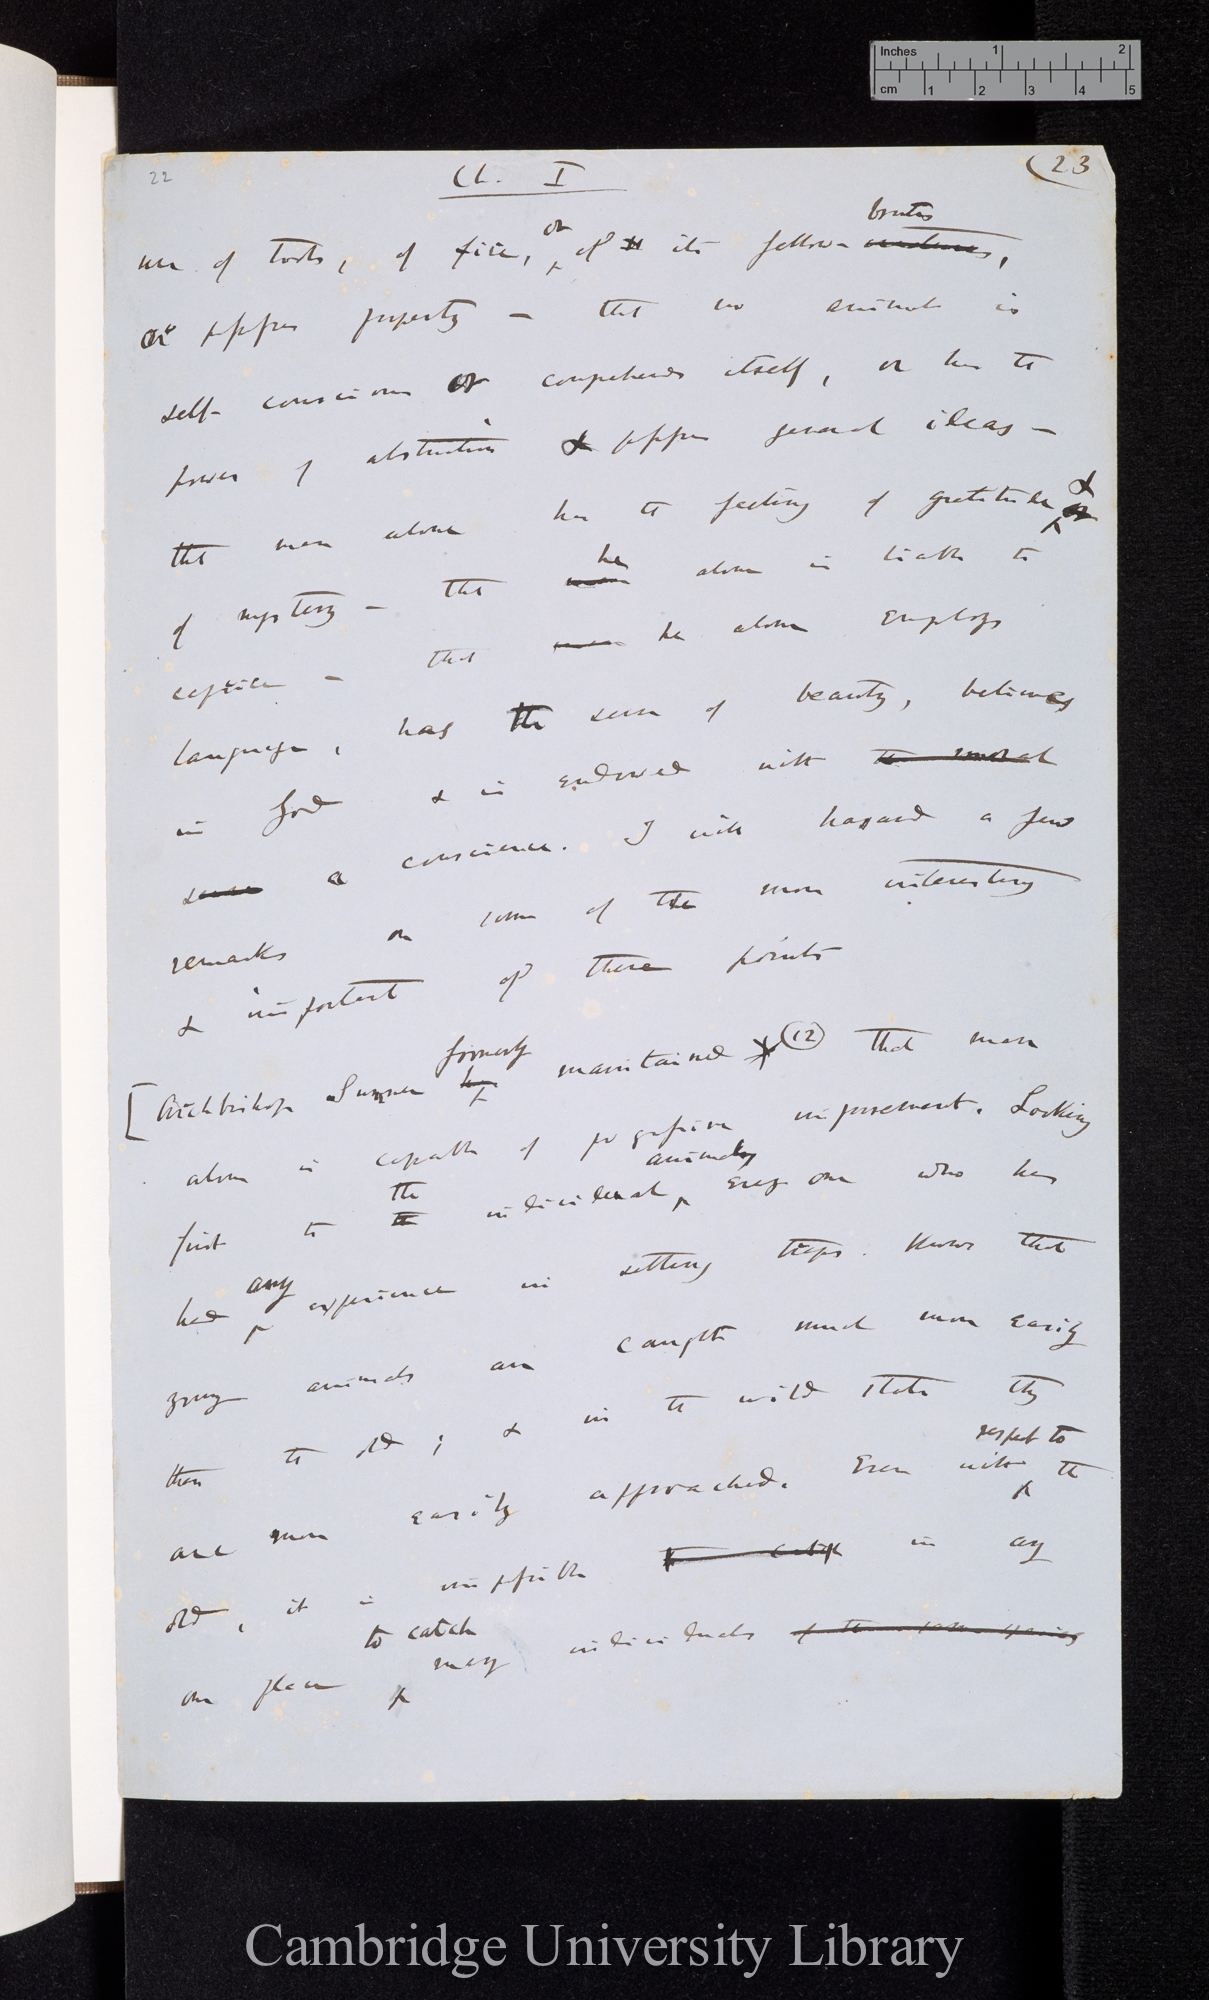 Inches 1 2
cm 1 2 3 4 5
22 Ch. I (23
brutes
use of tools, of fire, or of its fellow- creatures,
or possess property — that no animal is
self-conscious or comprehends itself, or has the
power of abstraction & possesses general ideas —
that man alone has the feeling of gratitude &
of mystery — that man he alone is liable to
caprice — that man he alone employs
language, has the sense of beauty, believes
in God & is endowed with the moral
sense a conscience. I will hazard a few
remarks on some of the more interesting
& important of these points
[Archbishop Sumner has formerly maintained (12) that man
alone is capable of progressive improvement. Looking
first to the the individual animals, every one who has
had any experience in setting traps knows that
young animals are caught much more easily
than the old; & in the wild state they
are more easily approached. Even with respect to the
old, it is impossible to catch in any
one place to catch many individuals of the same species
Cambridge University Library